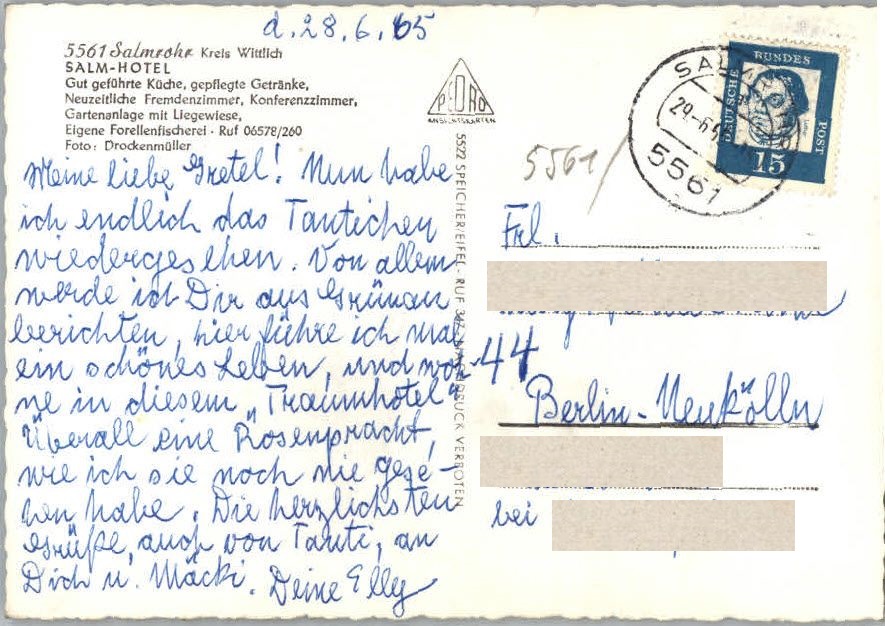 d. 28.6.65
5561 Salmrohr Kreis Wittlich
SALM-HOTEL
Gut geführte Küche, gepflegte Getränke,
Neuzeitliche Fremdenzimmer, Konferenzzimmer,
Gartenanlage mit Liegewiese,
Eigene Forellenfischerei · Ruf 06578/260
Foto: Drockenmüller
Meine liebe Gretel! Nun habe
ich endlich das Tantchen
wiedergesehen. Von allem
werde ich Dir aus Grünau
berichten, hier führe ich mal
ein schönes Leben, und woh-
ne in diesem „Traumhotel"
Überall eine Rosenpracht,
wie ich sie noch nie gese-
hen habe. Die herzlichsten
Grüße, auch von Tanti, an
Dich u. Mäcki. Deine Elly
ANSICHTSKARTEN
5522 SPEICHER/EIFEL · RUF
NACHDRUCK VERBOTEN
5561
DEUTSCHE BUNDESPOST
15
SALMROHR
29.-6.
5561
Frl.
44
Berlin-Neukölln
bei